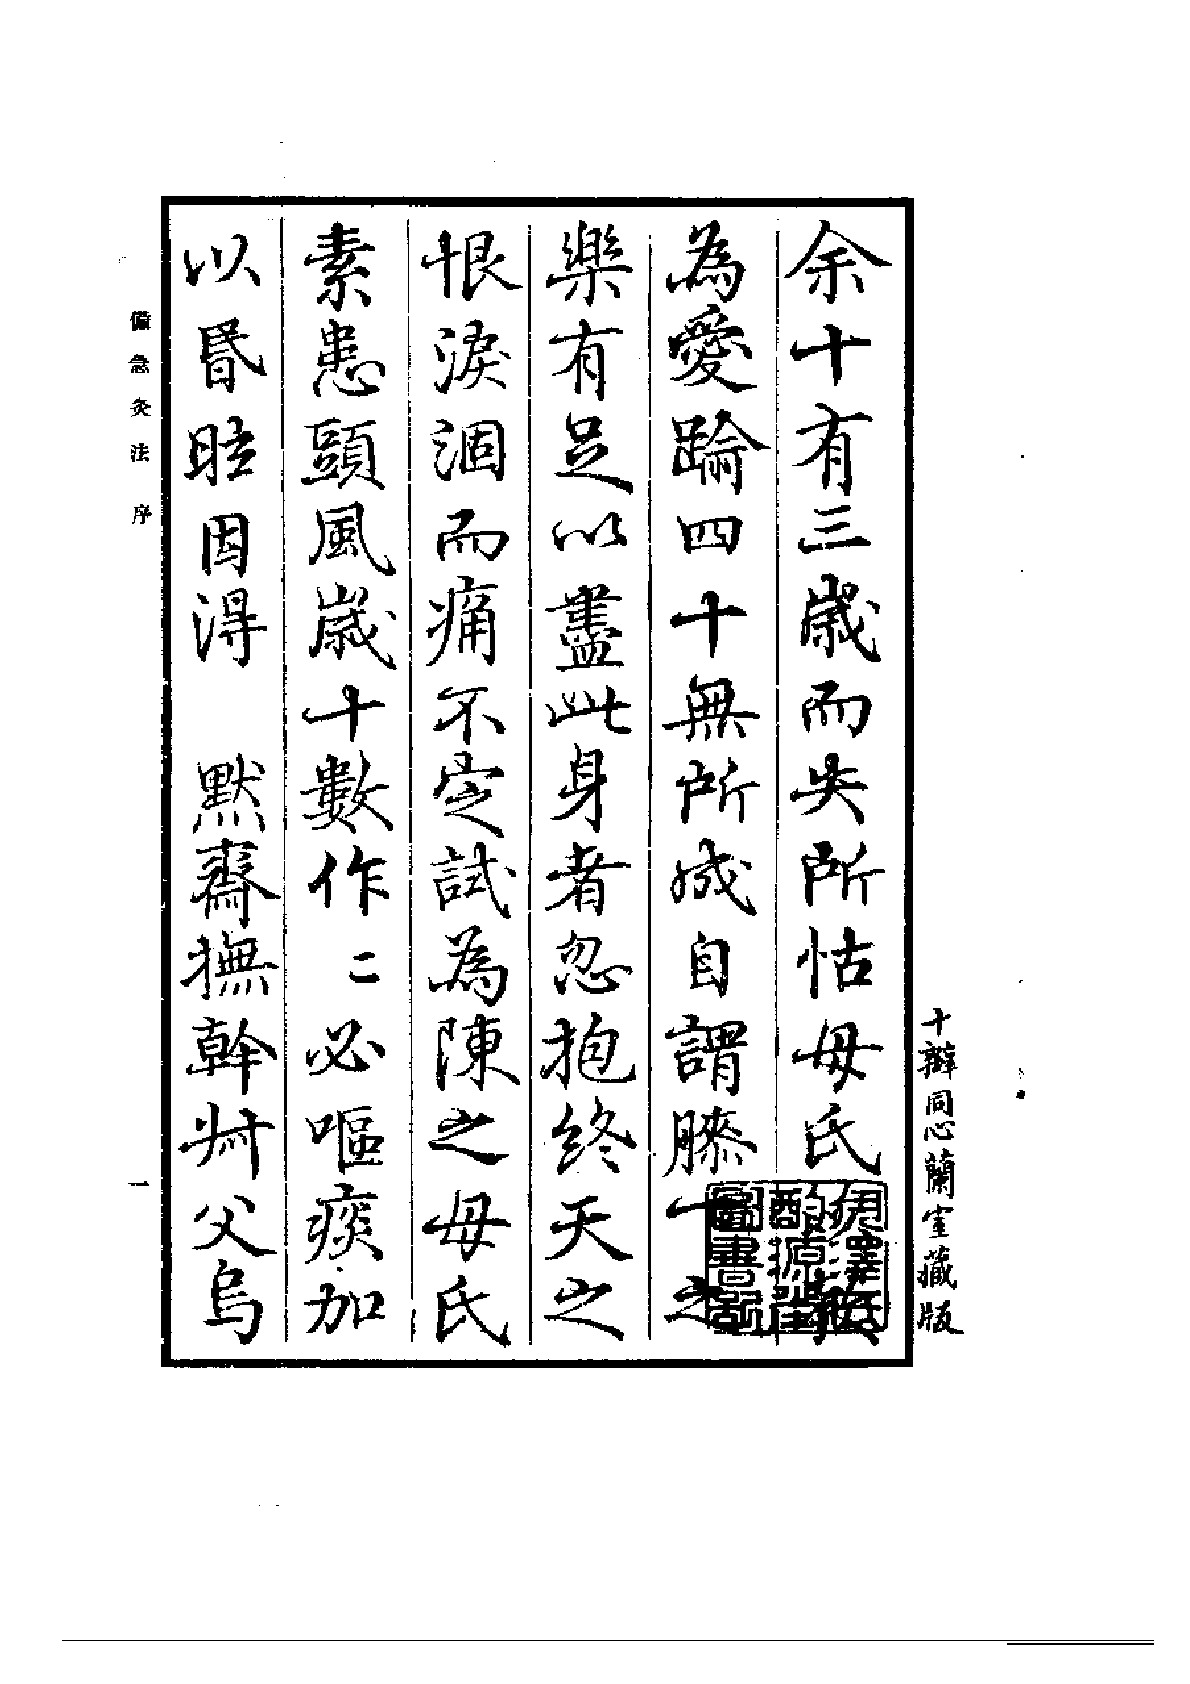 十瓣同心蘭室藏版
余十有三歲而失所怙母氏
為愛踰四十無所成自謂膝下之
樂有足以盡此身者忽抱終天之
恨淚涸而痛不定試為陳之母氏
素患頭風歲十數作〻必嘔痰加
以昬眩因得 默齋撫幹叔父烏
伊澤氏
酌源堂
圖書記
備急灸法 序 一